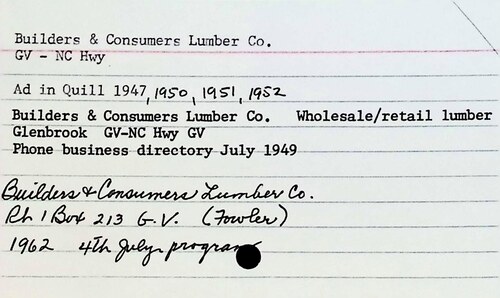 Builders & Consumers Lumber Co.
GV - NC Hwy
Ad in Quill 1947, 1950, 1951, 1952
Builders & Consumers Lumber Co. Wholesale/retail lumber
Glenbrook GV-NC Hwy GV
Phone business directory July 1949
Builders & Consumers Lumber Co.
Rh 1 Box 213 G.V. (Fowler)
1962 4th July program